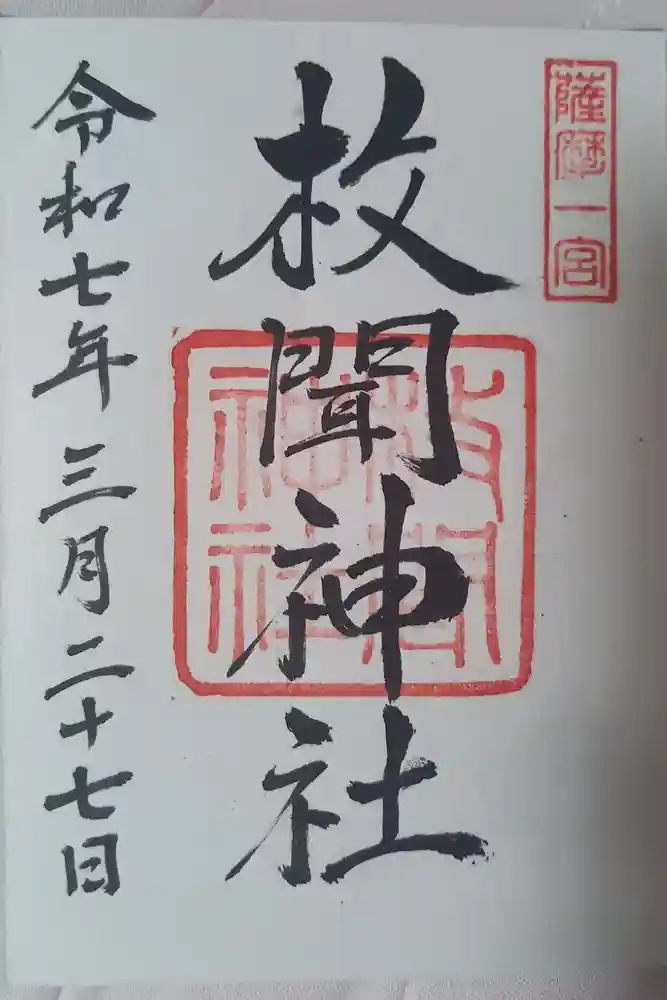 薩摩一宮
枚聞神社
枚聞
神社
令和七年三月二十七日